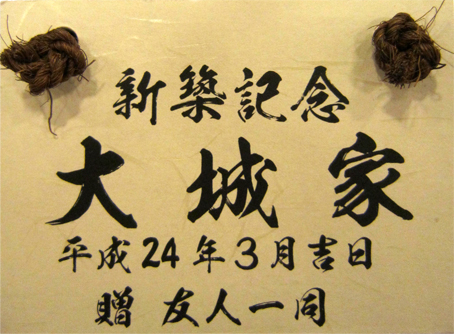 新築記念
大城家
平成24年3月吉日
贈 友人一同